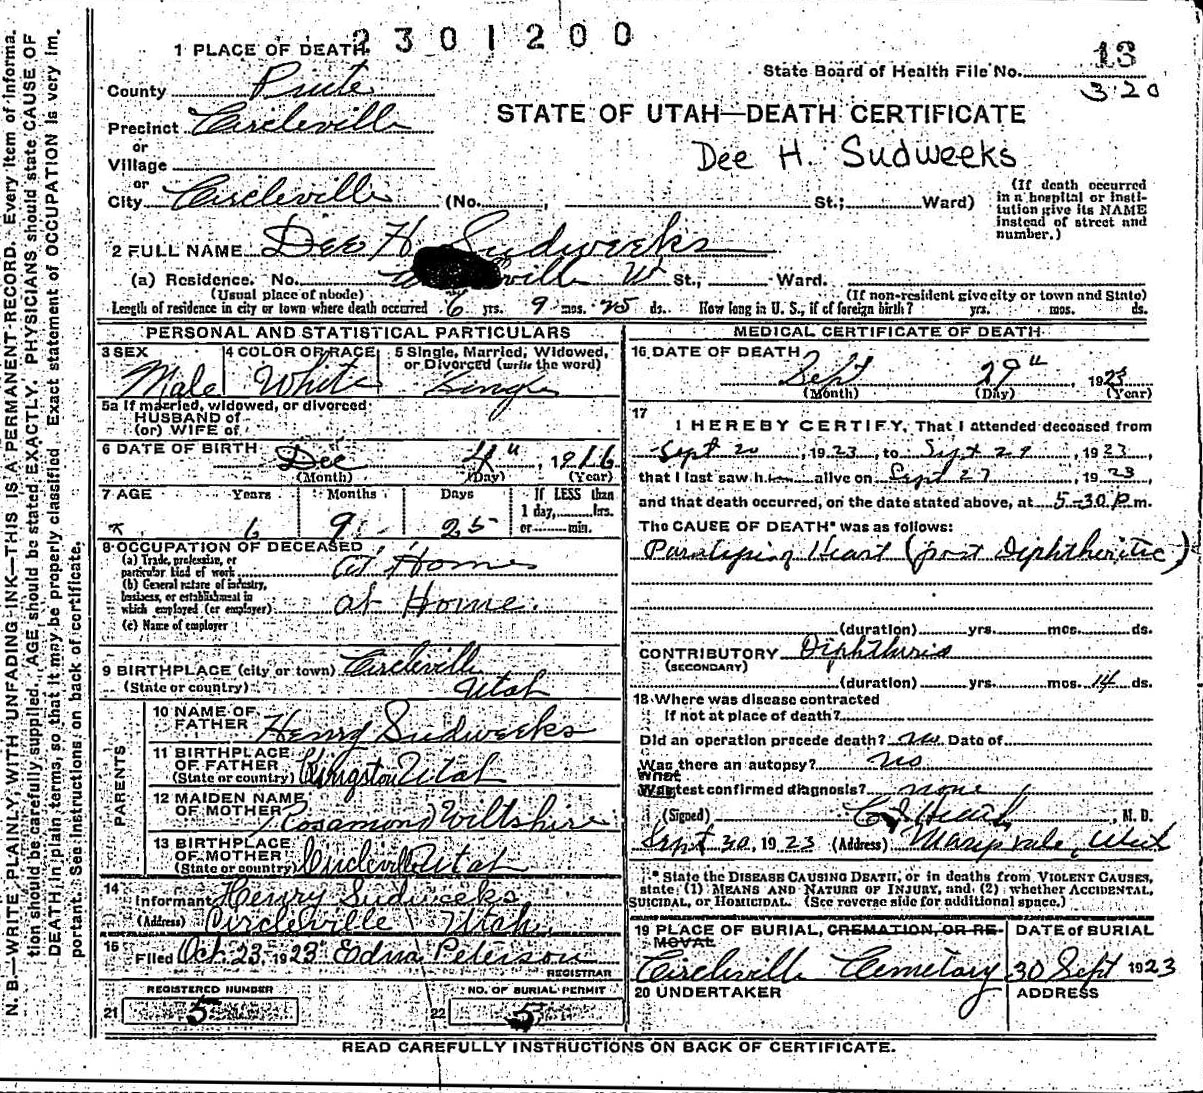 2301200
1 PLACE OF DEATH
13
State Board of Health File No.
320
County Piute
STATE OF UTAH—DEATH CERTIFICATE
Precinct Circleville
or
Village
Dee H. Sudweeks
or
City Circleville (No. , St.; Ward)
(If death occurred in a hospital or institution give its NAME instead of street and number.)
2 FULL NAME Dee H Sudweeks
(a) Residence. No. ville St., Ward.
(Usual place of abode) (If non-resident give city or town and State)
Length of residence in city or town where death occurred 6 yrs. 9 mos. 25 ds. How long in U. S., if of foreign birth? yrs. mos. ds.
PERSONAL AND STATISTICAL PARTICULARS
3 SEX 4 COLOR OR RACE 5 Single, Married, Widowed,
or Divorced (write the word)
Male White Single
5a If married, widowed, or divorced
HUSBAND of
(or) WIFE of
6 DATE OF BIRTH
Dec 4", 1916
(Month) (Day) (Year)
7 AGE Years Months Days If LESS than
1 day, hrs.
or min.
6 9 25
8 OCCUPATION OF DECEASED
(a) Trade, profession, or
particular kind of work at Home
(b) General nature of industry,
business, or establishment in
which employed (or employer) at Home.
(c) Name of employer
9 BIRTHPLACE (city or town) Circleville
(State or country) Utah
PARENTS
10 NAME OF
FATHER Henry Sudweeks
11 BIRTHPLACE
OF FATHER
(State or country) Kingston Utah
12 MAIDEN NAME
OF MOTHER Rosamond Wiltshire
13 BIRTHPLACE
OF MOTHER
(State or country) Circleville Utah
14
Informant Henry Sudweeks
(Address) Circleville Utah
15
Filed Oct 23, 1923 Edna Peterson
REGISTRAR
REGISTERED NUMBER NO. OF BURIAL PERMIT
21 5 22 5
MEDICAL CERTIFICATE OF DEATH
16 DATE OF DEATH
Sept 29", 1923
(Month) (Day) (Year)
17
I HEREBY CERTIFY, That I attended deceased from
Sept 20, 1923, to Sept 29, 1923,
that I last saw him alive on Sept 27, 1923,
and that death occurred, on the date stated above, at 5-30 P.m.
The CAUSE OF DEATH* was as follows:
Paralysing Heart (post Diphtheritic)
(duration) yrs. mos. ds.
CONTRIBUTORY Diphtheria
(SECONDARY)
(duration) yrs. mos. 14 ds.
18 Where was disease contracted
If not at place of death?
Did an operation precede death? no Date of
Was there an autopsy? no
What
test confirmed diagnosis? none
(Signed) C S Heath, M. D.
Sept 30, 1923 (Address) Marysvale, Utah
* State the DISEASE CAUSING DEATH, or in deaths from VIOLENT CAUSES,
state (1) MEANS AND NATURE OF INJURY, and (2) whether ACCIDENTAL,
SUICIDAL, or HOMICIDAL. (See reverse side for additional space.)
19 PLACE OF BURIAL, CREMATION, OR RE-
MOVAL
DATE of BURIAL
Circleville Cemetary 30 Sept 1923
20 UNDERTAKER ADDRESS
READ CAREFULLY INSTRUCTIONS ON BACK OF CERTIFICATE.
N. B.—WRITE PLAINLY, WITH UNFADING INK—THIS IS A PERMANENT RECORD. Every item of informa-
tion should be carefully supplied. AGE should be stated EXACTLY. PHYSICIANS should state CAUSE OF
DEATH in plain terms, so that it may be properly classified. Exact statement of OCCUPATION is very im-
portant. See instructions on back of certificate.